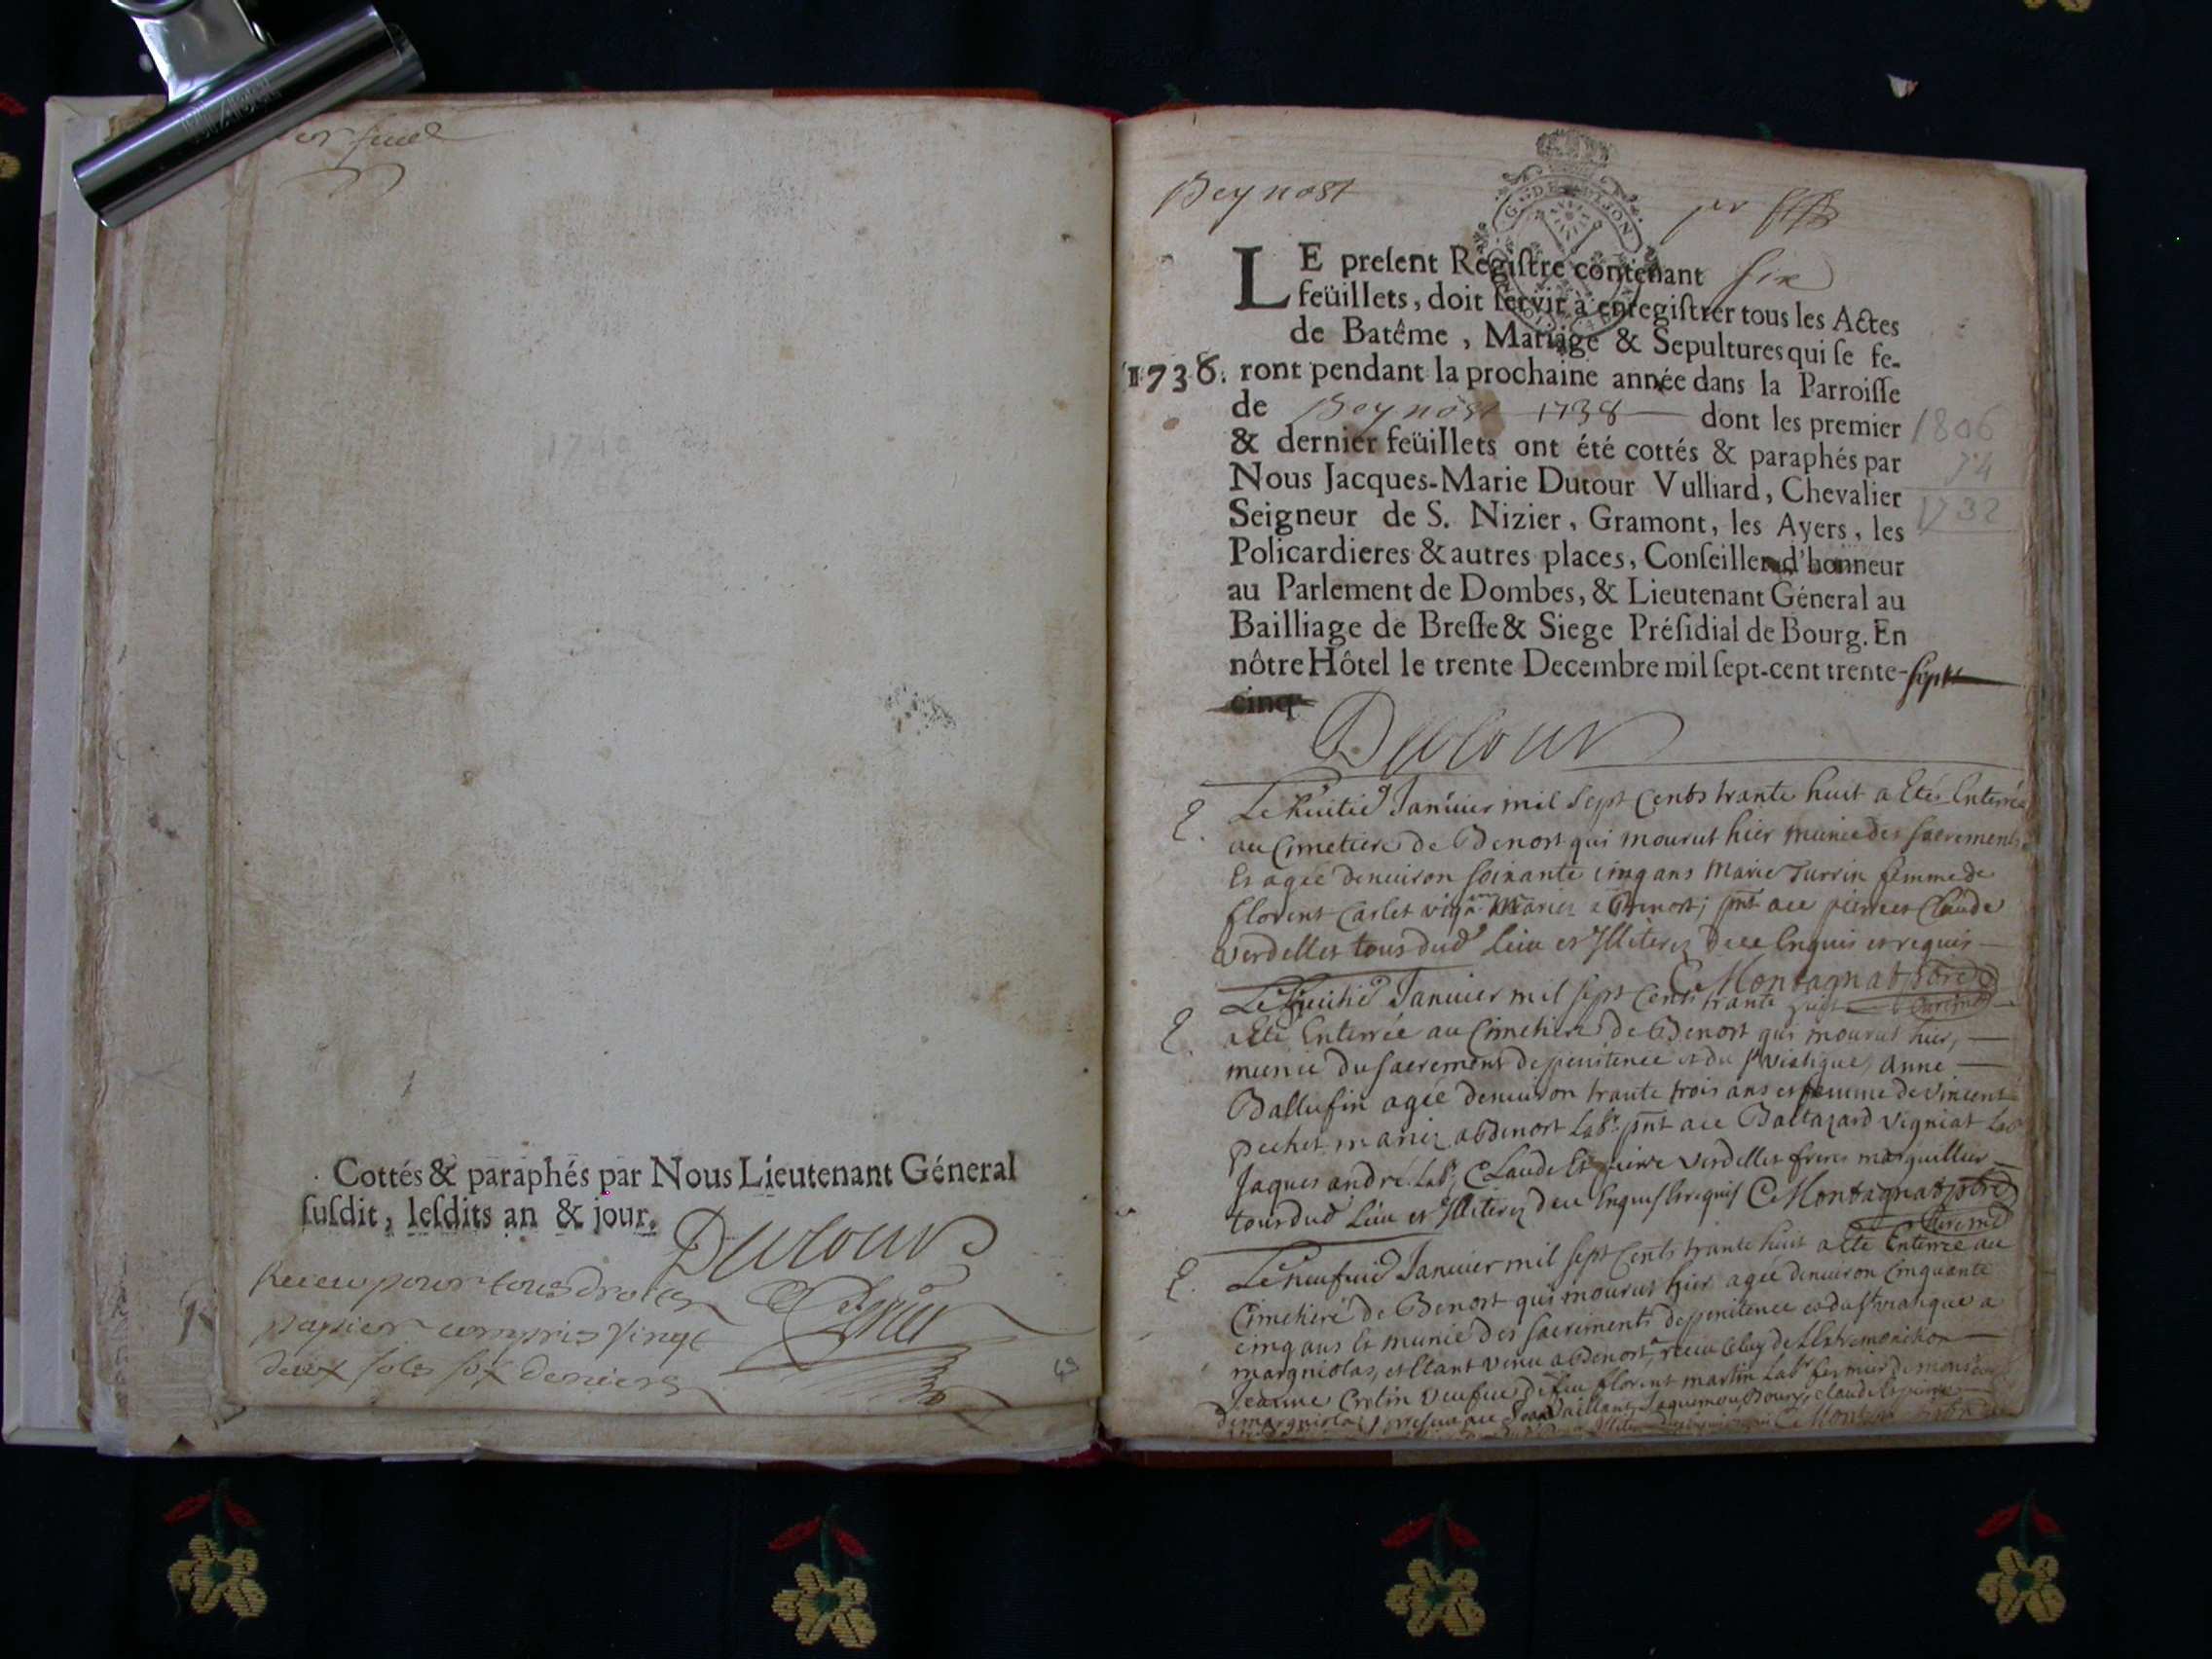 Cottés & paraphés par Nous Lieutenant Géneral
ſuſdit, leſdits an & jour.
Dutour
Receu pour tous droits
papier compris vingt
deux sols six deniers
Beynost
G. DE DIJON
LE preſent Regiſtre contenant six
feüillets, doit ſervir à enregiſtrer tous les Actes
de Batême, Mariage & Sepultures qui ſe fe-
1738. ront pendant la prochaine année dans la Parroiſſe
de Beynost 1738 dont les premier
& dernier feüillets ont été cottés & paraphés par
Nous Jacques-Marie Dutour Vulliard, Chevalier
Seigneur de S. Nizier, Gramont, les Ayers, les
Policardieres & autres places, Conſeiller d'honneur
au Parlement de Dombes, & Lieutenant Géneral au
Bailliage de Breſſe & Siege Préſidial de Bourg. En
nôtre Hôtel le trente Decembre mil ſept-cent trente-sept
cinq
Dutour
1806
74
1732
Le huitie Januier mil sept cents trante huit a Eté Enterrée
au Cimetiere de Benost qui mourut hier munie des sacrements
Et agée denuiron soixante cinq ans Marie Turrin femme de
florent Carlet mariez a Benost; pnt ace pierre et Claude
verdellet tous dud lieu et Illiterez de ce Enquis et requis
C Montagnat ptre
Le huitie Januier mil sept cents trante huit
a Eté Enterrée au Cimetiere de Benost qui mourut hier,
munie du sacrement de penitence et du st viatique, anne
Ballufin agée denuiron trante trois ans et femme de vincent
pechet mariez a Benost Labr pnt ace Baltazard vigniat Lab
Jaques andré Labr, Claude Et pierre verdellet freres marguillier
tous dud lieu et Illiterez de ce Enquis Et requis C Montagnat ptre
Le neufuie Januier mil sept cents trante huit a Eté Enterrée au
Cimetiere de Benost qui mourut hier agée denuiron cinquante
cinq ans Et munie des sacrements de penitence et du st viatique a
margniolas, et Etant venu a Benost, receu celuy de lExtremonction
Jeanne Cretin veufue de feu florent martin Labr fermier de